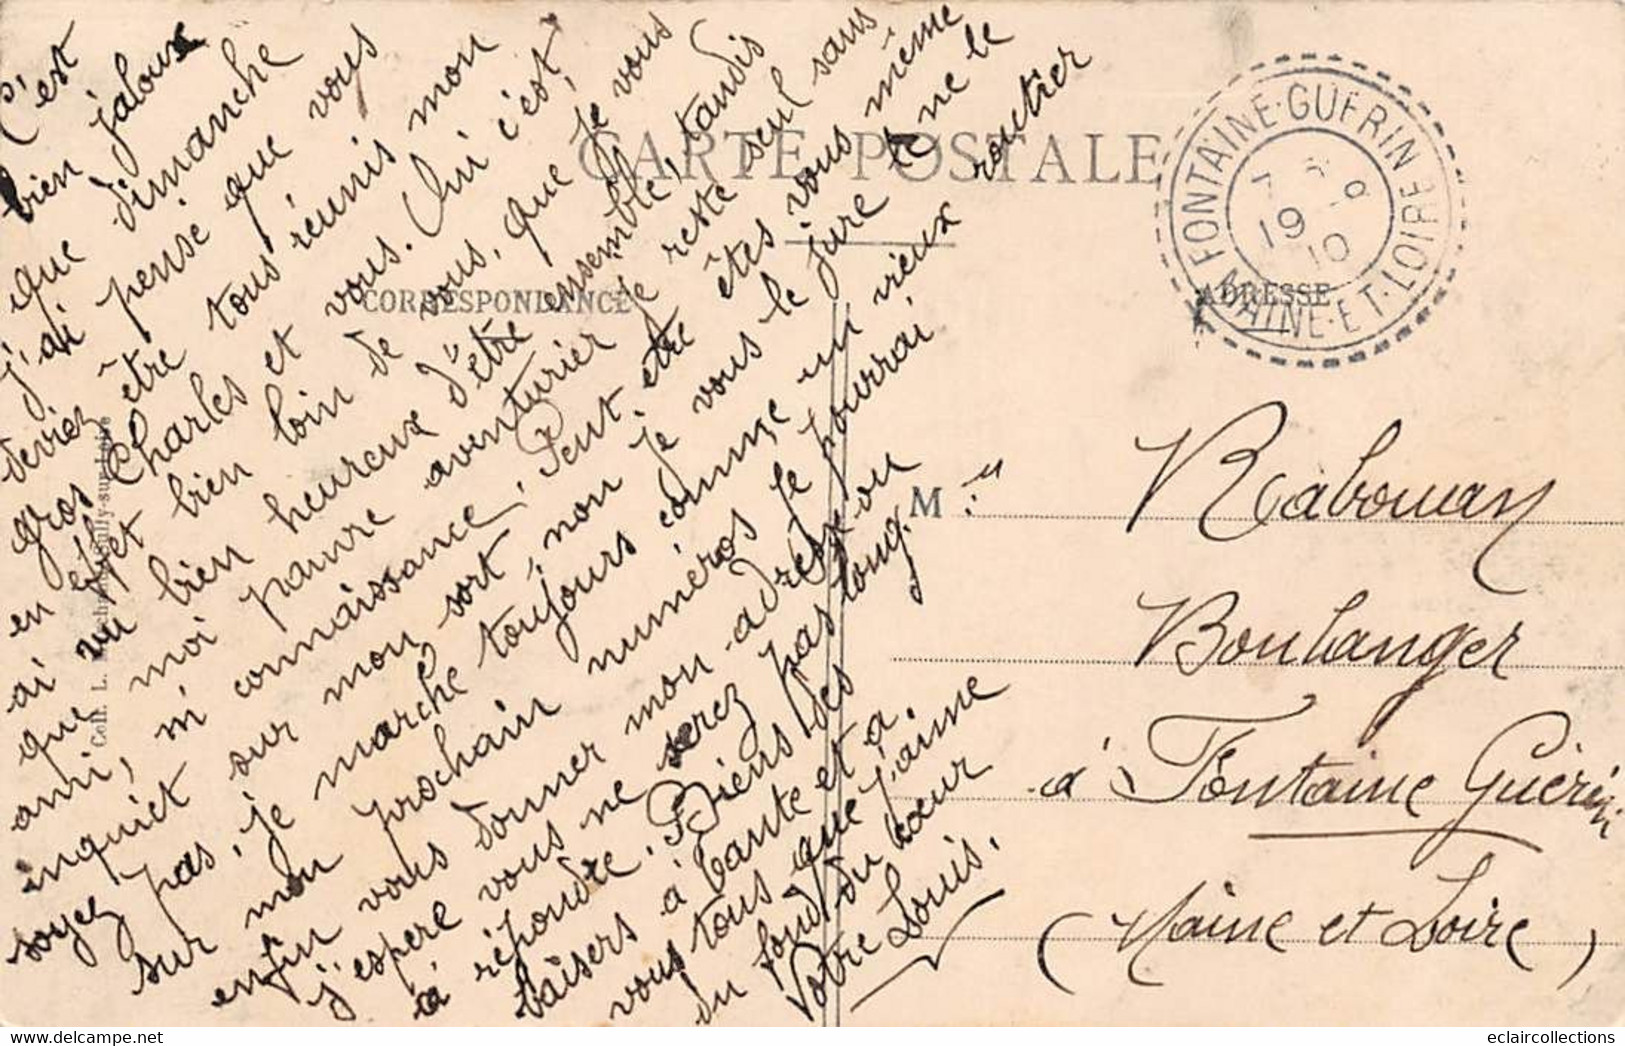 C'est
bien jaloux
que dimanche
j'ai pensé que vous
deviez être tous réunis mon
gros Charles et vous. Oui c'est,
en effet bien loin de vous, que je vous
ai vu bien heureux d'être ensemble, tandis
que moi pauvre aventurier je reste seul sans
ami, ni connaissance. Peut-être êtes vous même
inquiet sur mon sort, non je vous le jure et ne le
soyez pas, je marche toujours comme un vieux routier
sur mon prochain numéros je pourrai
enfin vous donner mon adresse ou
j'espere vous ne serez pas long
à répondre. Biens des
baisers à tante et a
vous tous que j'aime
du fond du cœur
Votre Louis.
CARTE POSTALE
CORRESPONDANCE
ADRESSE
FONTAINE-GUERIN
MAINE-ET-LOIRE
19 10
M r
Rabouan
Boulanger
à Fontaine Guérin
(Maine et Loire)
Coll. L.
eclaircollections
www.delcampe.net